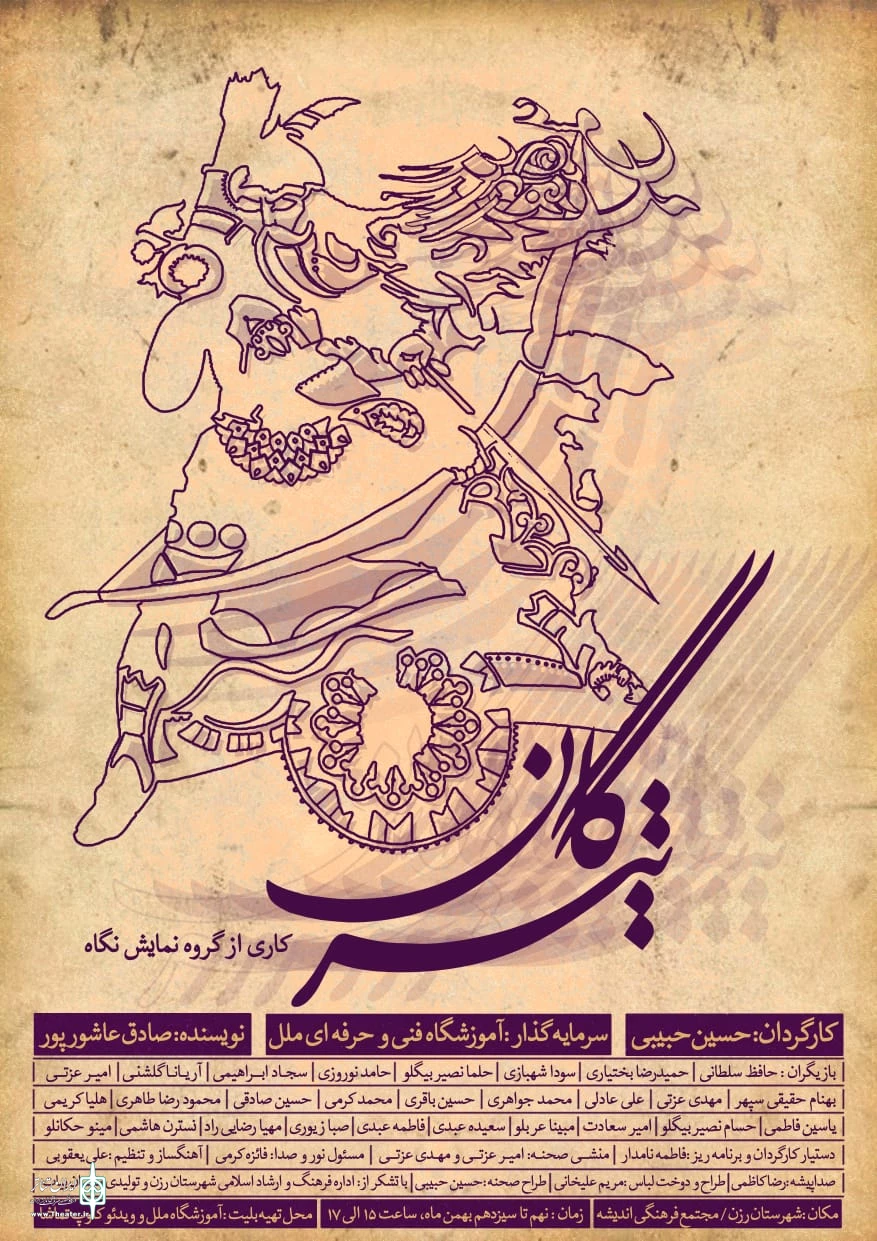 تیرگان
کاری از گروه نمایش نگاه
کارگردان: حسین حبیبی
سرمایه گذار: آموزشگاه فنی و حرفه ای ملل
نویسنده: صادق عاشورپور
بازیگران: حافظ سلطانی | حمیدرضا بختیاری | سودا شهبازی | حلما نصیر بیگلو | حامد نوروزی | سجاد ابراهیمی | آریانا گلشنی | امیر عزتی |
بهنام حقیقی سپهر | مهدی عزتی | علی عادلی | محمد جواهری | حسین باقری | محمد کرمی | حسین صادقی | محمود رضا طاهری | هلیا کریمی |
یاسین فاطمی | حسام نصیر بیگلو | امیر سعادت | مبینا عربلو | سعیده عبدی | فاطمه عبدی | صبا زیوری | مهیا رضایی راد | نسترن هاشمی | مینو حکانلو
دستیار کارگردان و برنامه ریز: فاطمه نامدار | منشی صحنه: امیر عزتی و مهدی عزتی | مسئول نور و صدا: فائزه کرمی | آهنگساز و تنظیم: علی یعقوبی
صداپیشه: رضا کاظمی | طراح و دوخت لباس: مریم علیخانی | طراح صحنه: حسین حبیبی | با تشکر از: اداره فرهنگ و ارشاد اسلامی شهرستان رزن و تولیدی
مکان: شهرستان رزن / مجتمع فرهنگی اندیشه
زمان: نهم تا سیزدهم بهمن ماه، ساعت ۱۵ الی ۱۷
محل تهیه بلیت: آموزشگاه ملل و ویدئو کلوپ
www.Theater.ir